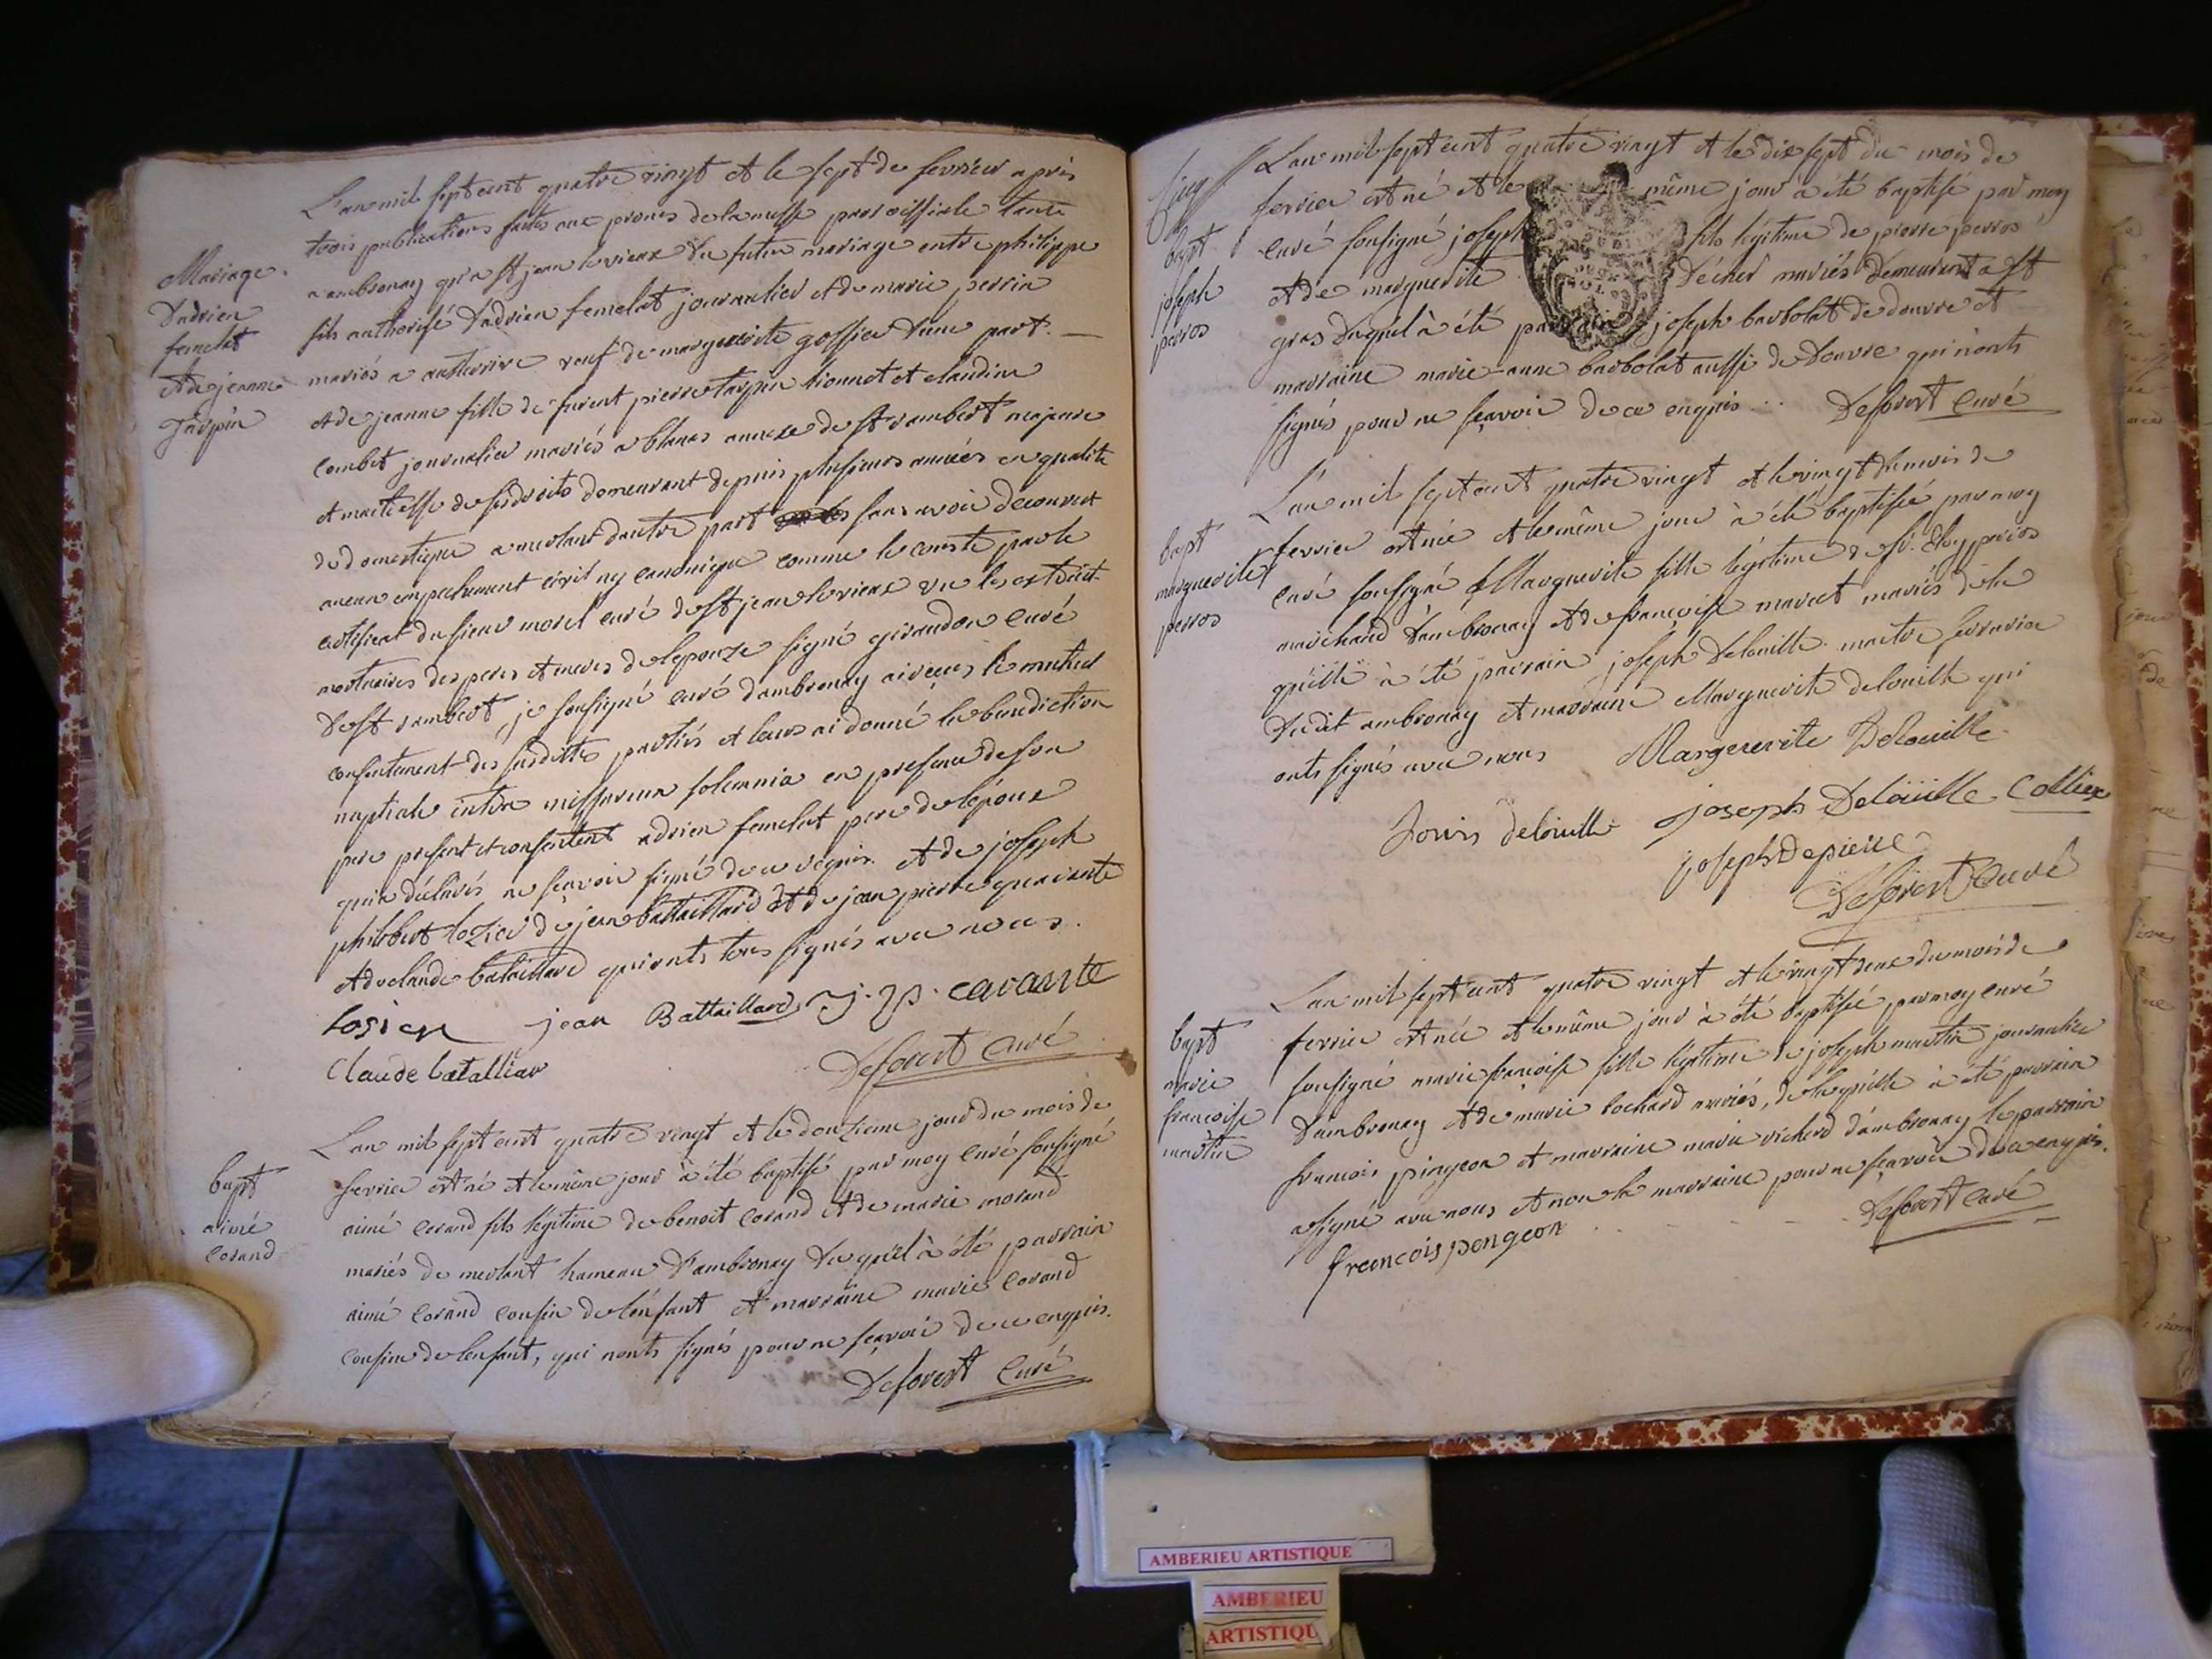 L'an mil sept cent quatre vingt et le sept de fevrier après
trois publications faites aux prones de la messe paroissiale tant
a ambronay qu'a st jean le vieux du futur mariage entre philippe
fils authorisé d'adrien femelat journalier et de marie perrin
mariés a veuf de marguerite gossier d'une part.
et de jeanne fille de furent pierre tarpin lionnet et claudine
combet journalier mariés a blanas annexe de st rambert majeure
et maitresse de ses droits demeurant depuis plusieurs années en qualité
de domestique a merlant d'autre part sans avoir decouvert
aucun empechement civil ny canonique comme le conste par le
certificat du sieur morel curé de st jean le vieux vu les extraits
mortuaires des peres et meres de l'epouze signé giraudon curé
de st rambert, je soussigné curé d'ambronay ai reçus le mutuel
consentement des susdittes parties et leurs ai donné la benediction
nuptiale intra missarum solemnia en presence de son
pere present et consentent adrien femelat pere de l'époux
qui a déclarés ne sçavoir signé de ce requis. et de joseph
philibert lozier de jean battaillard et de jean pierre quaivante
et de claude bataillard qui onts tous signés avec nous.
losier jean Battaillard J. p. cavante
Claude batalliar Deforest Curé
Mariage
d'adrien
femelat
et de jeanne
Tarpin
L'an mil sept cent quatre vingt et le douzieme jour du mois de
fevrier est né et le même jour à été baptisé par moy curé sousigné
aimé corand fils légitime de benoit corand et de marie morand
mariés de merlant hameau d'ambronay duquel à été parrain
aimé corand cousin de l'énfant et marraine marie corand
cousine de l'enfant, qui n'onts signés pour ne sçavoir de ce enquis.
Deforest Curé
bapt
aimé
corand
L'an mil sept cent quatre vingt et le dix sept du mois de
fevrier est né et le même jour à été baptisé par moy
curé sousigné joseph fils légitime de pierre perros
et de marguerite Décher mariés demeurant a st
gras duquel à été parrain joseph barbolat de douvre et
marraine marie-anne barbolat aussi de douvre qui n'onts
signés pour ne sçavoir de ce enquis... Deforest Curé
bapt
joseph
perros
L'an mil sept cent quatre vingt et le vingt du mois de
fevrier est née et le même jour à été baptisée par moy
curé sousigné Marguerite fille légitime de sr. perros
marchand d'ambronay et de francoise maret mariés de la
quelle à été parrain joseph delouille maitre serrurier
dudit ambronay et marraine Marguerite delouille qui
onts signés avec nous Margererite Delouille
Louis delouille joseph Deloüille Collier
joseph Depierre
Deforest Curé
bapt
marguerite
perros
L'an mil sept cent quatre vingt et le vingt deux du mois de
fevrier est née et le même jour à été baptisé par moy curé
sousigné marie francoise fille légitime de joseph martin journalier
d'ambronay et de marie bochard mariés, de laquelle à été parrain
francois pingeon et marraine marie richerd d'ambronay le parrain
a signé avec nous et non la marraine pour ne sçavoir de ce enquis.
francois pengeon Deforest Curé
bapt
marie
francoise
martin
AMBERIEU ARTISTIQUE
AMBERIEU
ARTISTIQU